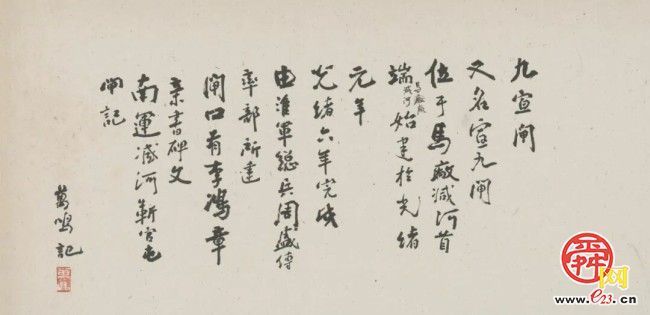 九宣闸
又名宣九闸
位于馬廠減河首
端始建於光緒
元年
光緒六年完成
由淮軍總兵周盛傳
率部所建
闸口有李鴻章
亲書碑文
南運減河靳官屯
闸記
萬鳴記
舜网
www.e23.cn